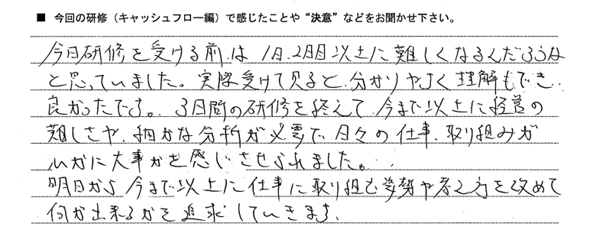 ■ 今回の研修（キャッシュフロー編）で感じたことや“決意”などをお聞かせ下さい。
今日研修を受ける前は 1日、2日目以上に難しくなるんだろうな
と思っていました。実際受けて見ると、分かりやすく理解もでき
良かったです。3日間の研修を終えて 今まで以上に経営の
難しさや、細かな分析が必要で、日々の仕事、取り組みが
いかに大事かを感じさせられました。
明日から 今まで以上に仕事に取り組む姿勢や考え方を改めて
何が出来るかを追求していきます。